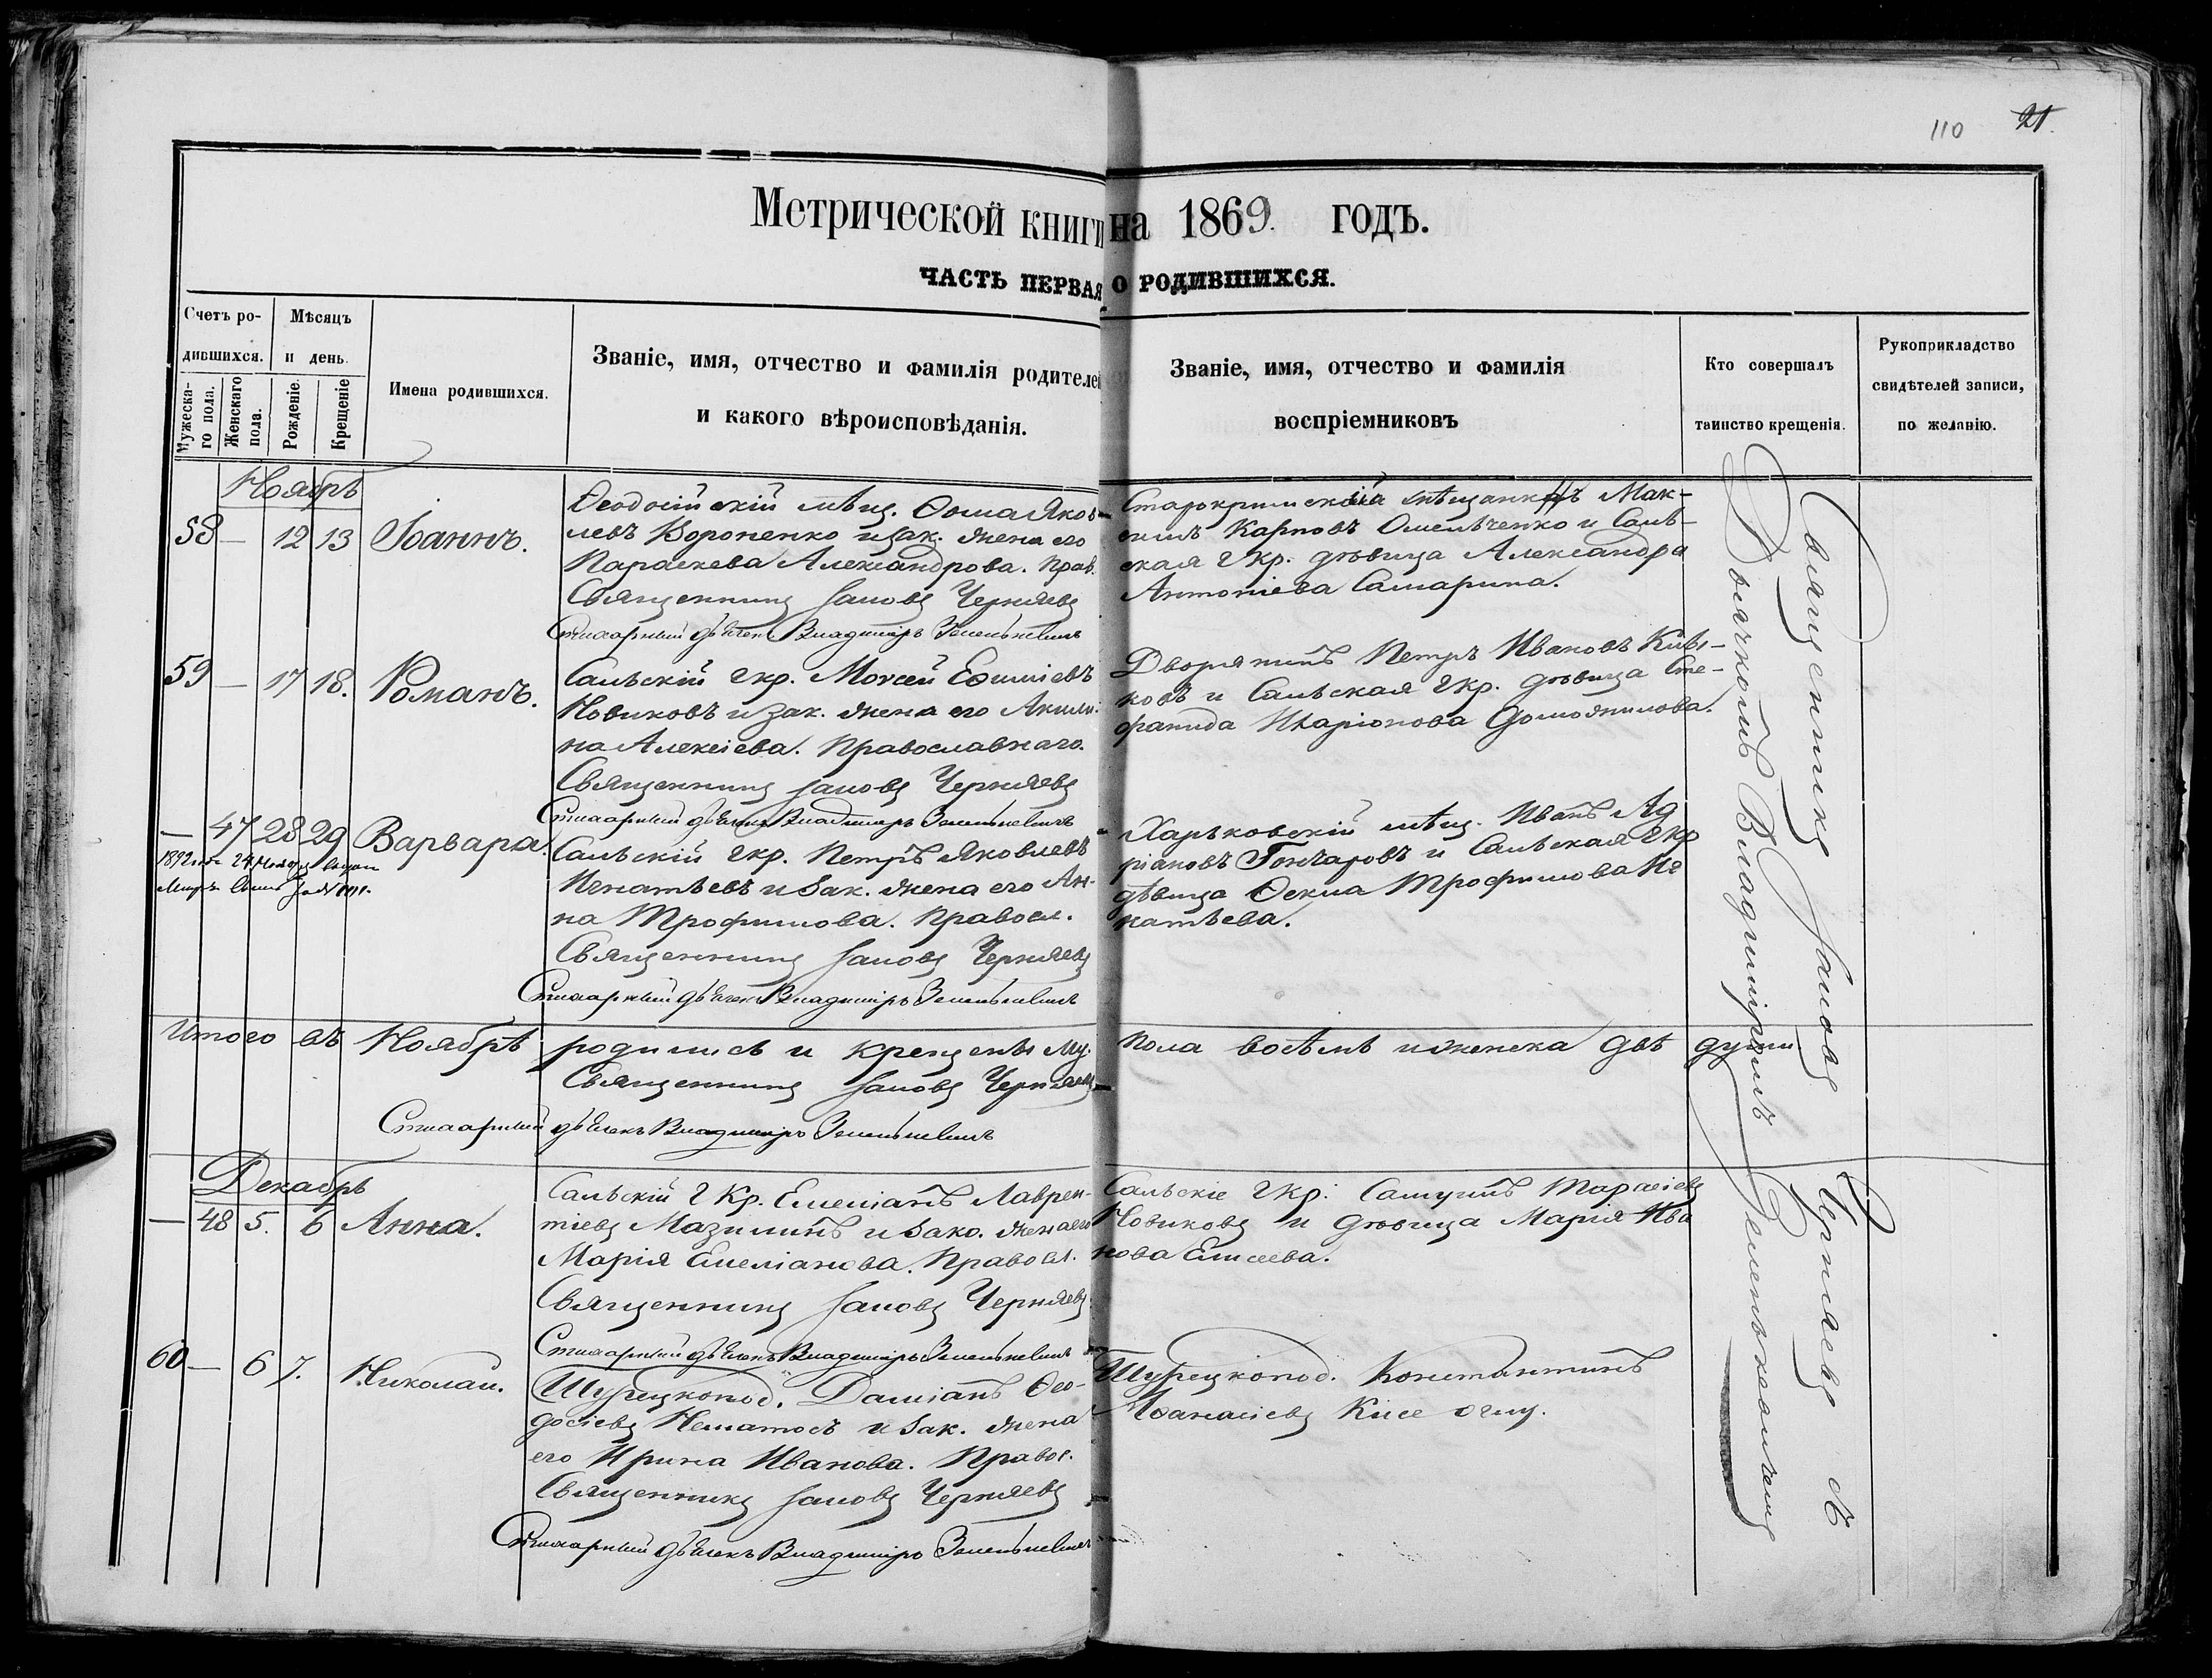 110 21.
Метрической книги на 1869. годъ.
ЧАСТЬ ПЕРВАЯ О РОДИВШИХСЯ.
Счетъ родившихся.
Мѣсяцъ и день.
Мужескаго пола.
Женскаго пола.
Рожденіе.
Крещеніе
Имена родившихся.
Званіе, имя, отчество и фамилія родителей
и какого вѣроисповѣданія.
Званіе, имя, отчество и фамилія
воспріемниковъ
Кто совершалъ
таинство крещенія.
Рукоприкладство
свидѣтелей записи,
по желанію.
Ноябрь
58 — 12 13 Іоаннъ.
Ѳеодосійскій мѣщ. Ѳома Яков-
левъ Вороненко и зак. жена его
Параскева Александрова. Прав.
Священникъ Іаковъ Черняевъ
Стихарный дьячекъ Владиміръ Зеленькевичъ
Макс-
имъ Карповъ Омельченко и Саль-
ская Гкр. дѣвица Александра
Антоніева Самарина.
59 — 17 18. Романъ.
Сальскій Гкр. Моѵсей Еѳиміевъ
Новиковъ и зак. жена его Акили-
на Алексіева. Православнаго.
Священникъ Іаковъ Черняевъ
Стихарный дьячекъ Владиміръ Зеленькевичъ
Дворянинъ Петръ Ивановъ
и Сальская Гкр. дѣвица Сте-
фанида Иларіонова Доможилова.
— 47 28 29 Варвара.
Сальскій Гкр. Петръ Яковлевъ
Игнатьевъ и зак. жена его Ан-
на Трофимова. Правосл.
Священникъ Іаковъ Черняевъ
Стихарный дьячекъ Владиміръ Зеленькевичъ
Харьковскій мѣщ. Иванъ Ад
ріановъ Гончаровъ и Сальская Гкр
дѣвица Ѳекла Трофимова Иг
натьева.
Итого въ Ноябрѣ родились и крещены му. пола восемь и женска двѣ души.
Священникъ Іаковъ Черняевъ
Стихарный дьячекъ Владиміръ Зеленькевичъ
Декабрь
— 48 5. 6 Анна.
Сальскій Гкр. Емеліанъ Лаврен-
тіевъ Мазилинъ и зако. жена его
Марія Емеліанова. Правосл.
Священникъ Іаковъ Черняевъ
Стихарный дьячекъ Владиміръ Зеленькевичъ
Сальскіе Гкр. Самуилъ Тарасіевъ
Новиковъ и дѣвица Марія Ива
нова Елисеева.
60 — 6 7. Николай.
Турецкопод. Даміанъ Ѳео-
досіевъ и зак. жена
его Ирина Иванова. Правос.
Священникъ Іаковъ Черняевъ
Стихарный дьячекъ Владиміръ Зеленькевичъ
Турецкопод. Константинъ
Аѳанасіевъ
Священникъ Іаковъ Черняевъ съ
Дьячкомъ Владиміромъ Зеленькевичемъ